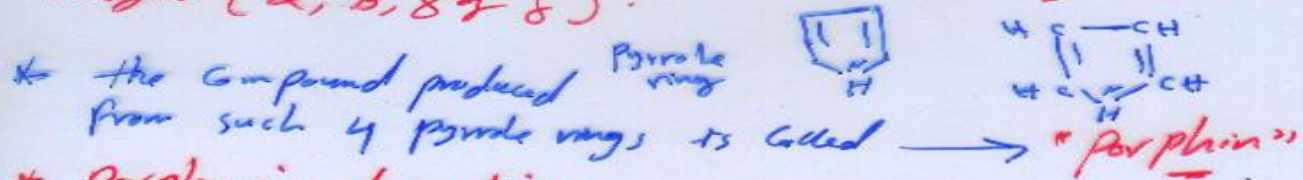 (α, β, γ & δ).
* the Compound produced
Pyrrole
ring
H
H C — CH
H C N CH
H
from such 4 pyrrole rings is Called → "Porphin"